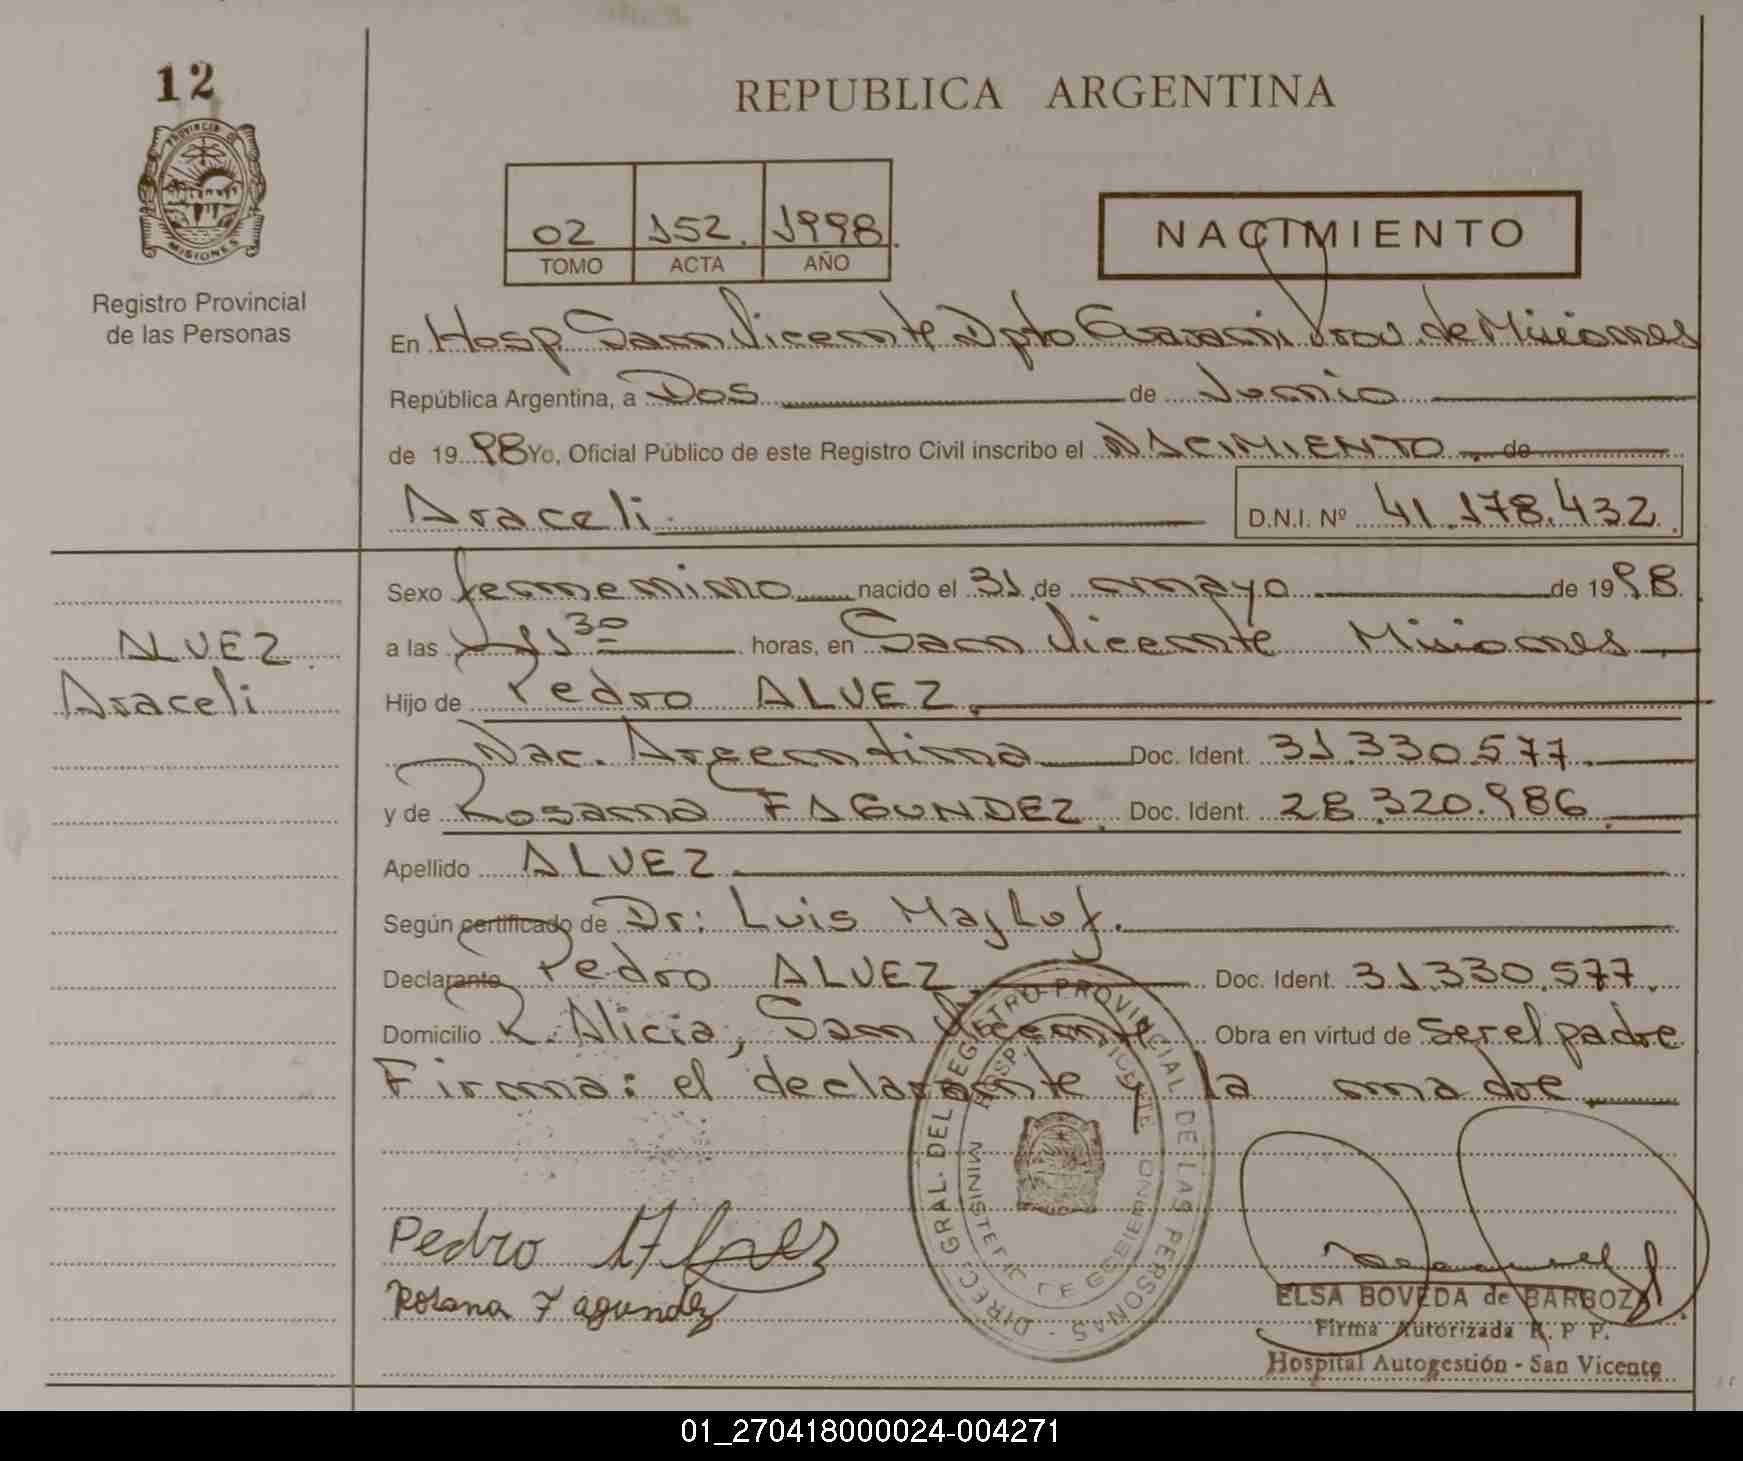 12
REPUBLICA ARGENTINA
PROVINCIA D
MISIONES
Registro Provincial
de las Personas
02 152. 1998.
TOMO ACTA AÑO
NACIMIENTO
En Hosp San Vicente Dpto Guarani Prov. de Misiones
República Argentina, a Dos de Junio
de 1998 Yo, Oficial Público de este Registro Civil inscribo el NACIMIENTO de
Araceli D.N.I. Nº 41.178.432.
Sexo femenino nacido el 31 de mayo de 1998.
ALVEZ
Araceli
a las 11 30 horas, en San Vicente Misiones
Hijo de Pedro ALVEZ
Nac. Argentina Doc. Ident. 31.330.577.
y de Rosana FAGUNDEZ. Doc. Ident. 28.320.986.
Apellido ALVEZ
Según certificado de Dr: Luis Majluf.
Declarante Pedro ALVEZ Doc. Ident. 31.330.577.
Domicilio Alicia, San Vicente Obra en virtud de ser el padre
Firma: el declarante y la madre
DIREC. GRAL. DEL REGISTRO PROVINCIAL DE LAS PERSONAS
HOSP. VICENTE
MINISTERIO DE GOBIERNO
Pedro Alvez
Rosana Fagundez
ELSA BOVEDA de BARBOZA
Firma Autorizada R. P P.
Hospital Autogestión - San Vicente
01_270418000024-004271